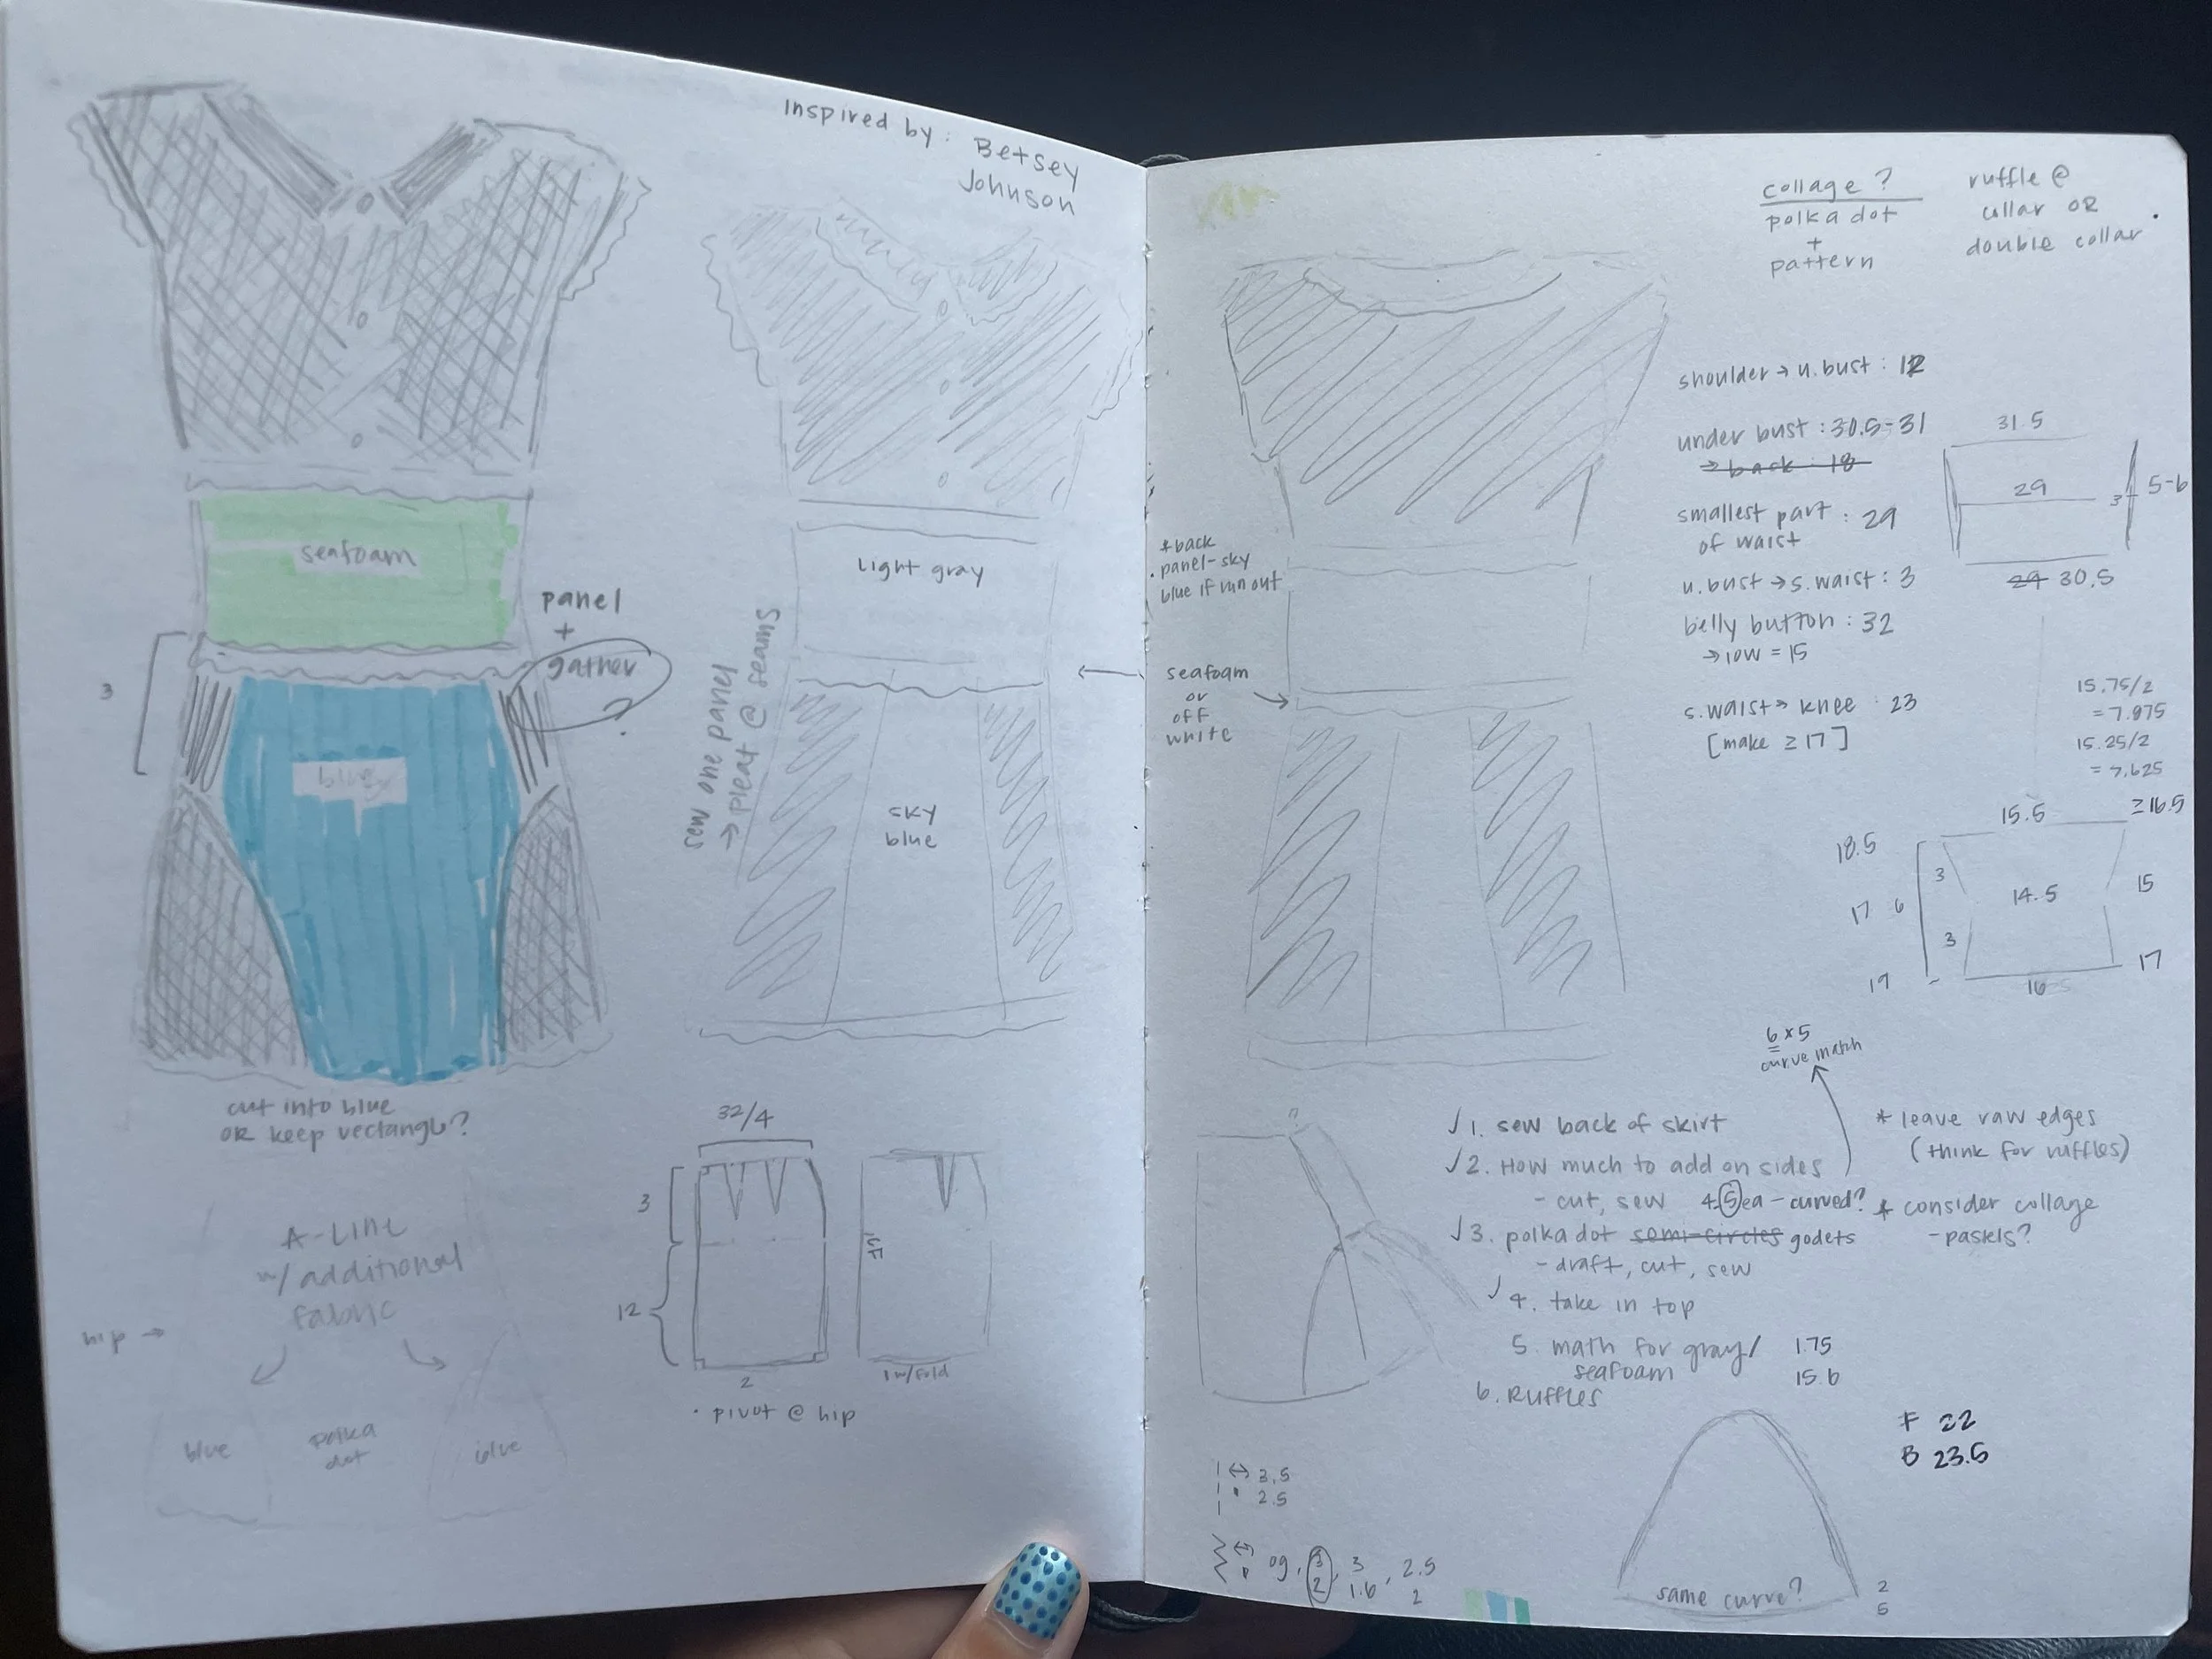 Inspired by: Betsey
Johnson
seafoam
panel
+
gather
?
3
blue
cut into blue
OR keep rectangle?
A-Line
w/ additional
fabric
hip →
blue
polka
dot
blue
light gray
sew one panel
→ pleat @ seams
sky
blue
32/4
3
12
2
1 w/ fold
• pivot @ hip
collage?
polka dot
+
pattern
ruffle @
collar OR
double collar
* back
• panel-sky
blue if run out
seafoam
or
off
white
shoulder → u.bust : 12
under bust : 30.5-31
→ back : 18
smallest part : 29
of waist
u.bust → s.waist : 3
belly button : 32
→ low = 15
s.waist → knee : 23
[make ≥ 17]
31.5
29
3
5-6
29 30.5
15.75/2
= 7.875
15.25/2
= 7.625
15.5
≥16.5
18.5
3
14.5
15
17
6
3
17
19
16
6 x 5
curve match
✓ 1. sew back of skirt
✓ 2. How much to add on sides
- cut, sew 4.5 ea - curved?
✓ 3. polka dot semi-circles godets
- draft, cut, sew
✓ 4. take in top
5. math for gray/
seafoam
1.75
15.6
6. Ruffles
* leave raw edges
(think for ruffles)
* consider collage
- pastels?
?
F 22
B 23.5
↔ 3.5
2.5
↔ og, 3, 3, 2.5
2 1.6 2
same curve?
2
5